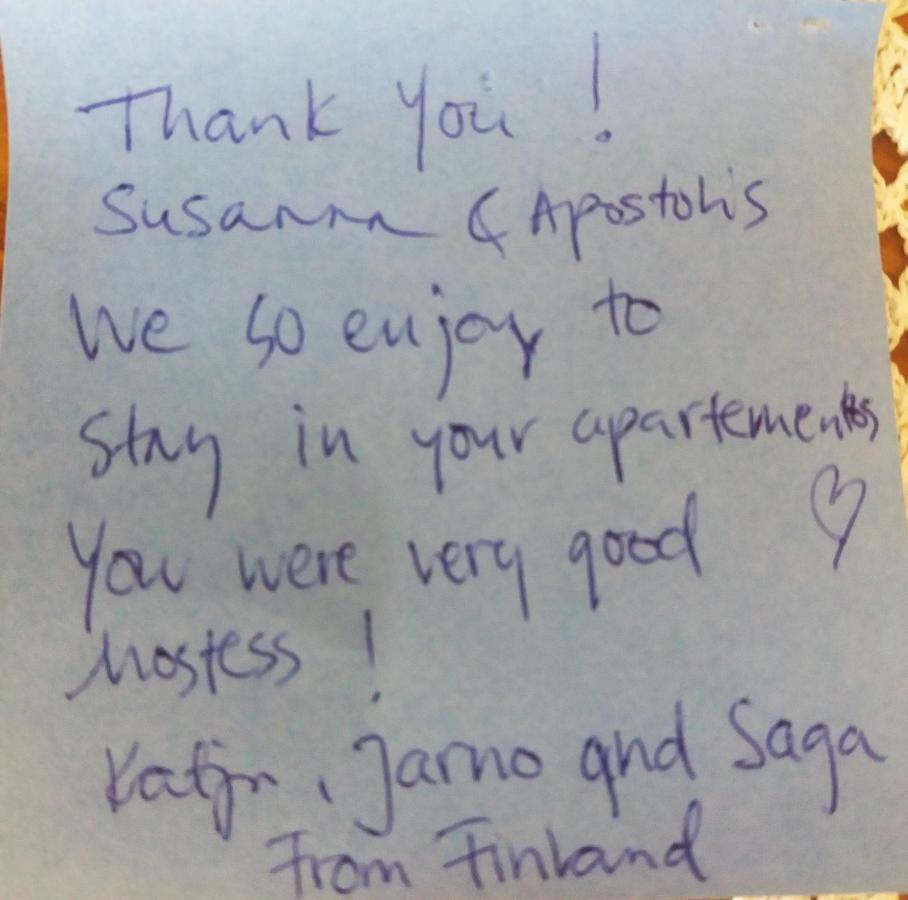 Thank You !
Susanna & Apostolis
We so enjoy to
Stay in your apartementos
You were very good ♡
hostess !
Katja, Jarno and Saga
From Finland